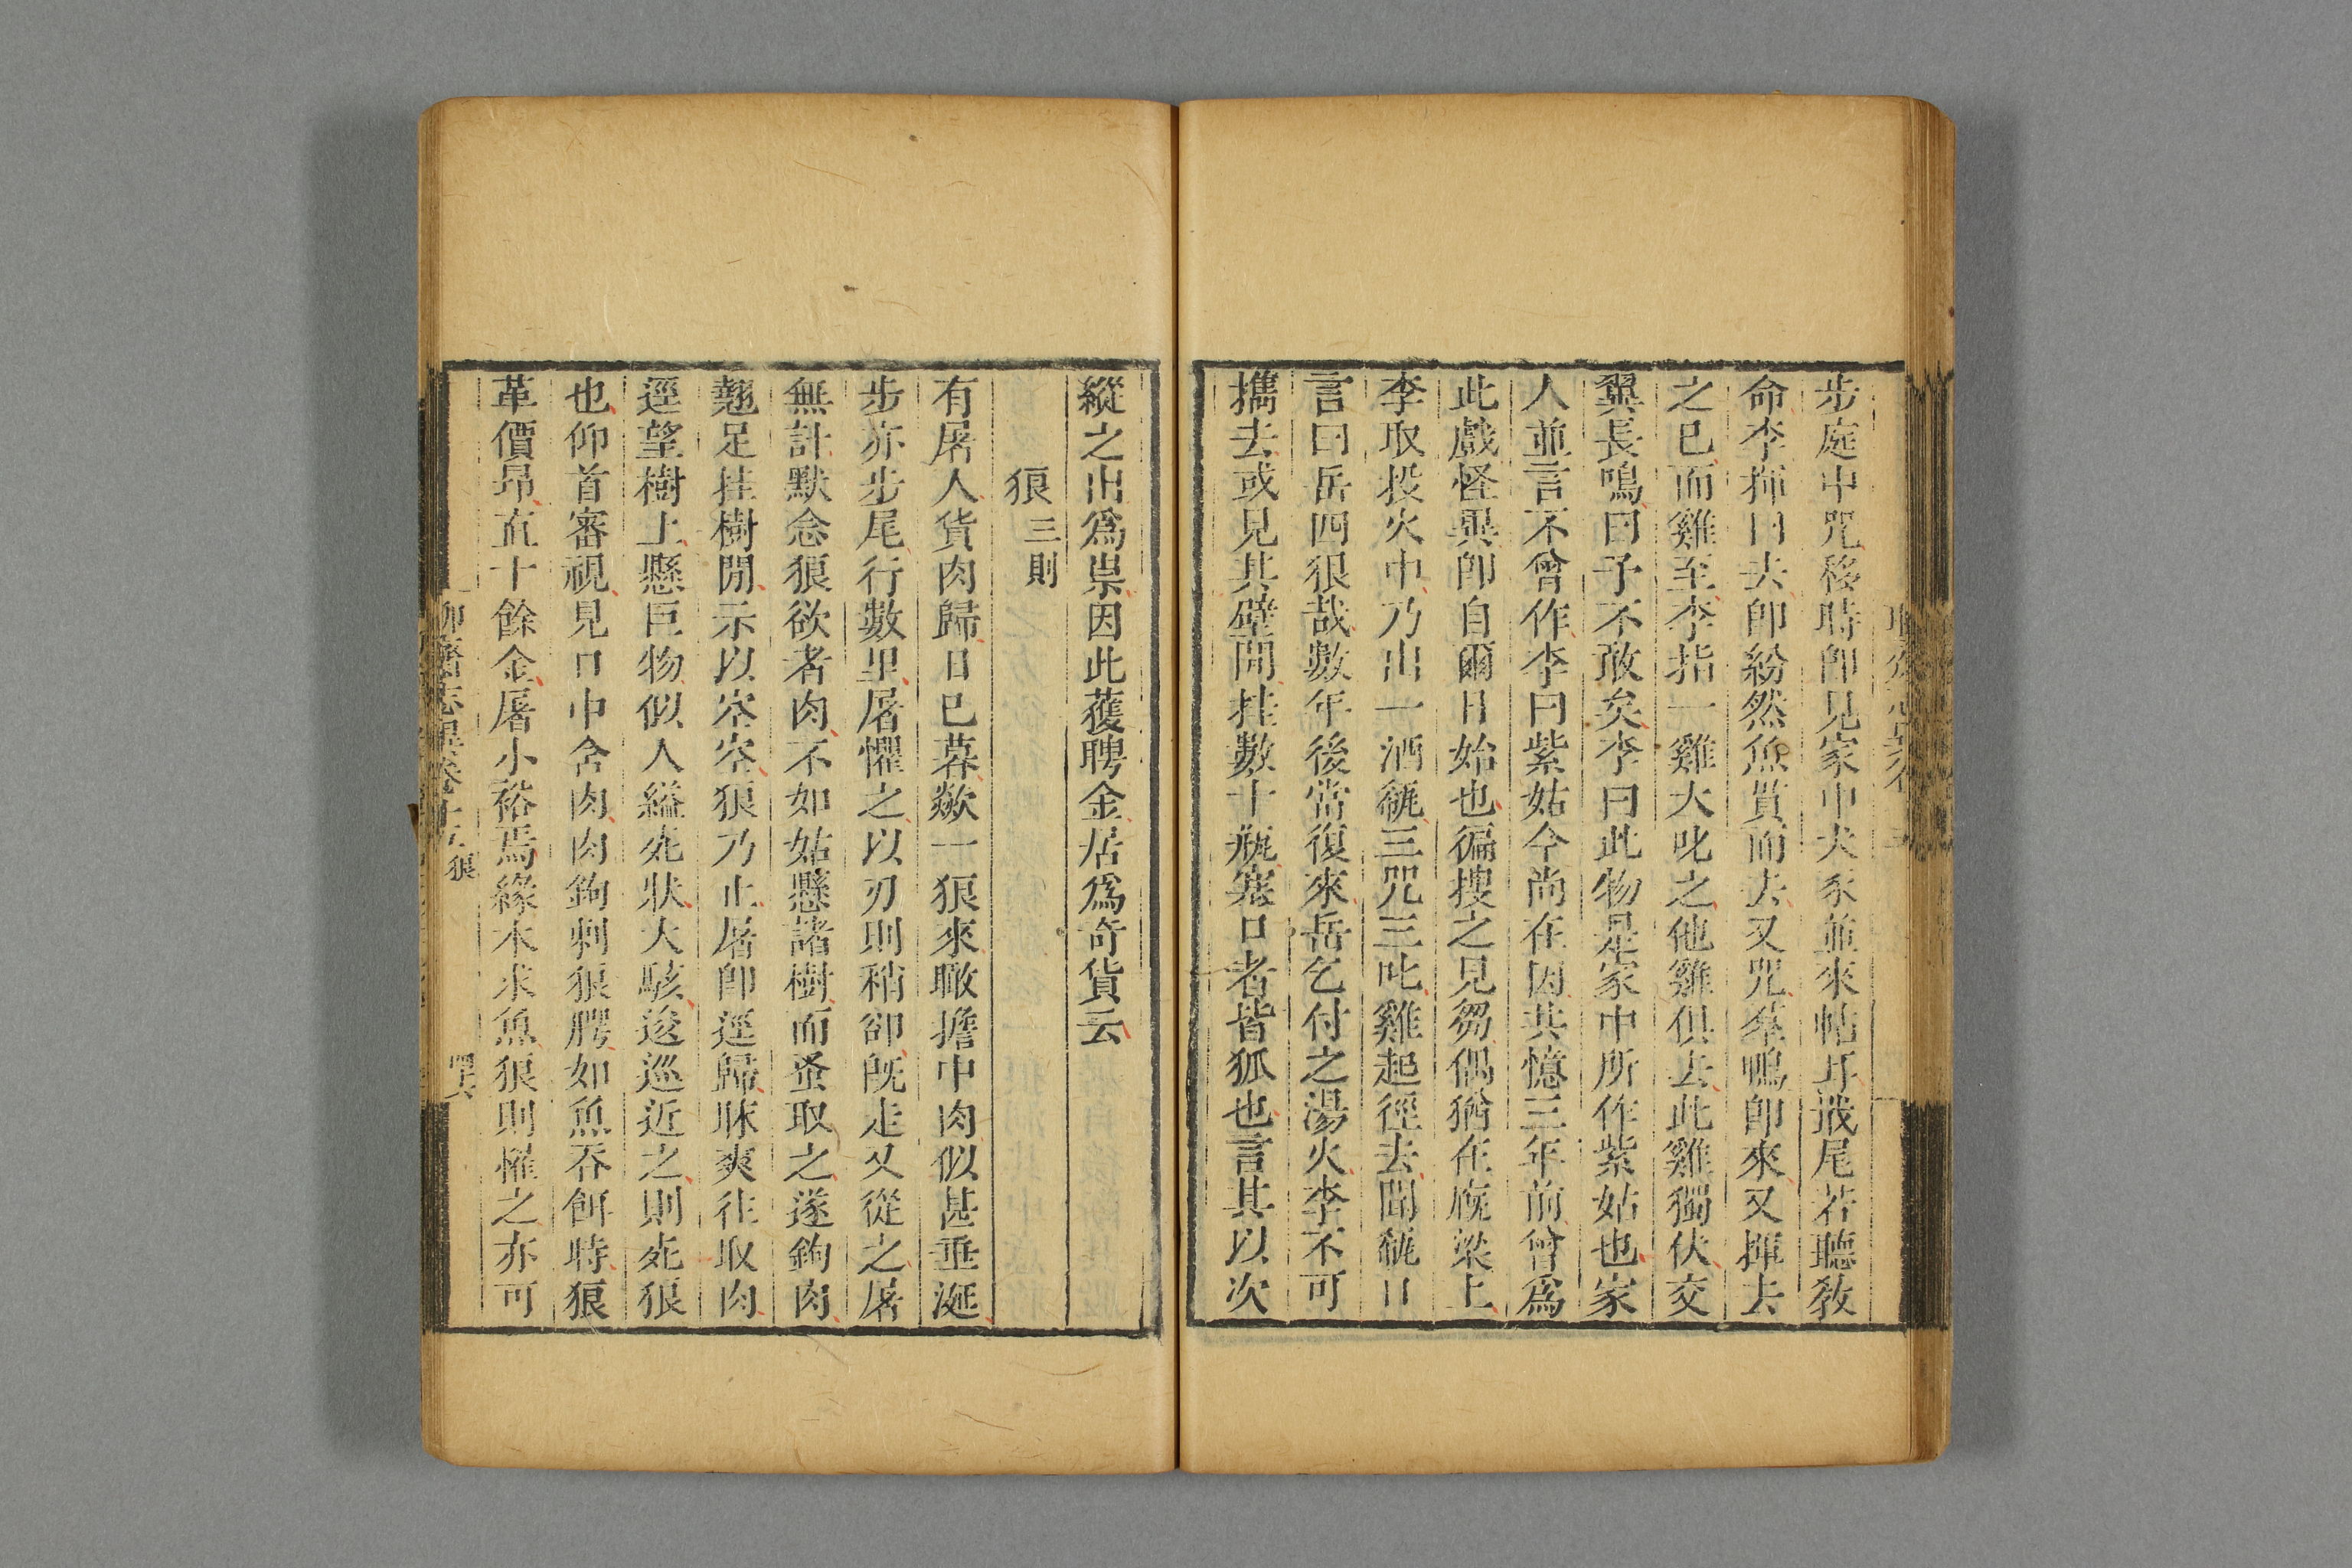 步庭中咒移時即見家中犬豕並來帖耳戢尾若聽教
命李揮曰去即紛然魚貫而去又咒羣鴨即來又揮去
之已而雞至李指一雞大叱之他雞俱去此雞獨伏交
翼長鳴曰予不敢矣李曰此物是家中所作紫姑也家
人並言不曾作李曰紫姑今尚在因共憶三年前曾爲
此戲怪異即自爾日始也徧搜之見芻偶猶在廄梁上
李取投火中乃出一酒瓻三咒三叱雞起徑去聞瓻口
言曰岳四狠哉數年後當復來岳乞付之湯火李不可
攜去或見其壁間挂數十瓶塞口者皆狐也言其以次
縱之出爲祟因此獲聘金居爲奇貨云
狼三則
有屠人貨肉歸日已暮歘一狼來瞰擔中肉似甚垂涎
步亦步尾行數里屠懼之以刃則稍卻既走又從之屠
無計默念狼欲者肉不如姑懸諸樹而蚤取之遂鉤肉
翹足挂樹閒示以空空狼乃止屠即逕歸昧爽往取肉
逕望樹上懸巨物似人縊死狀大駭逡巡近之則死狼
也仰首審視見口中含肉肉鉤刺狼腭如魚吞餌時狼
革價昂直十餘金屠小裕焉緣木求魚狼則懼之亦可
聊齋志異卷十五 狼